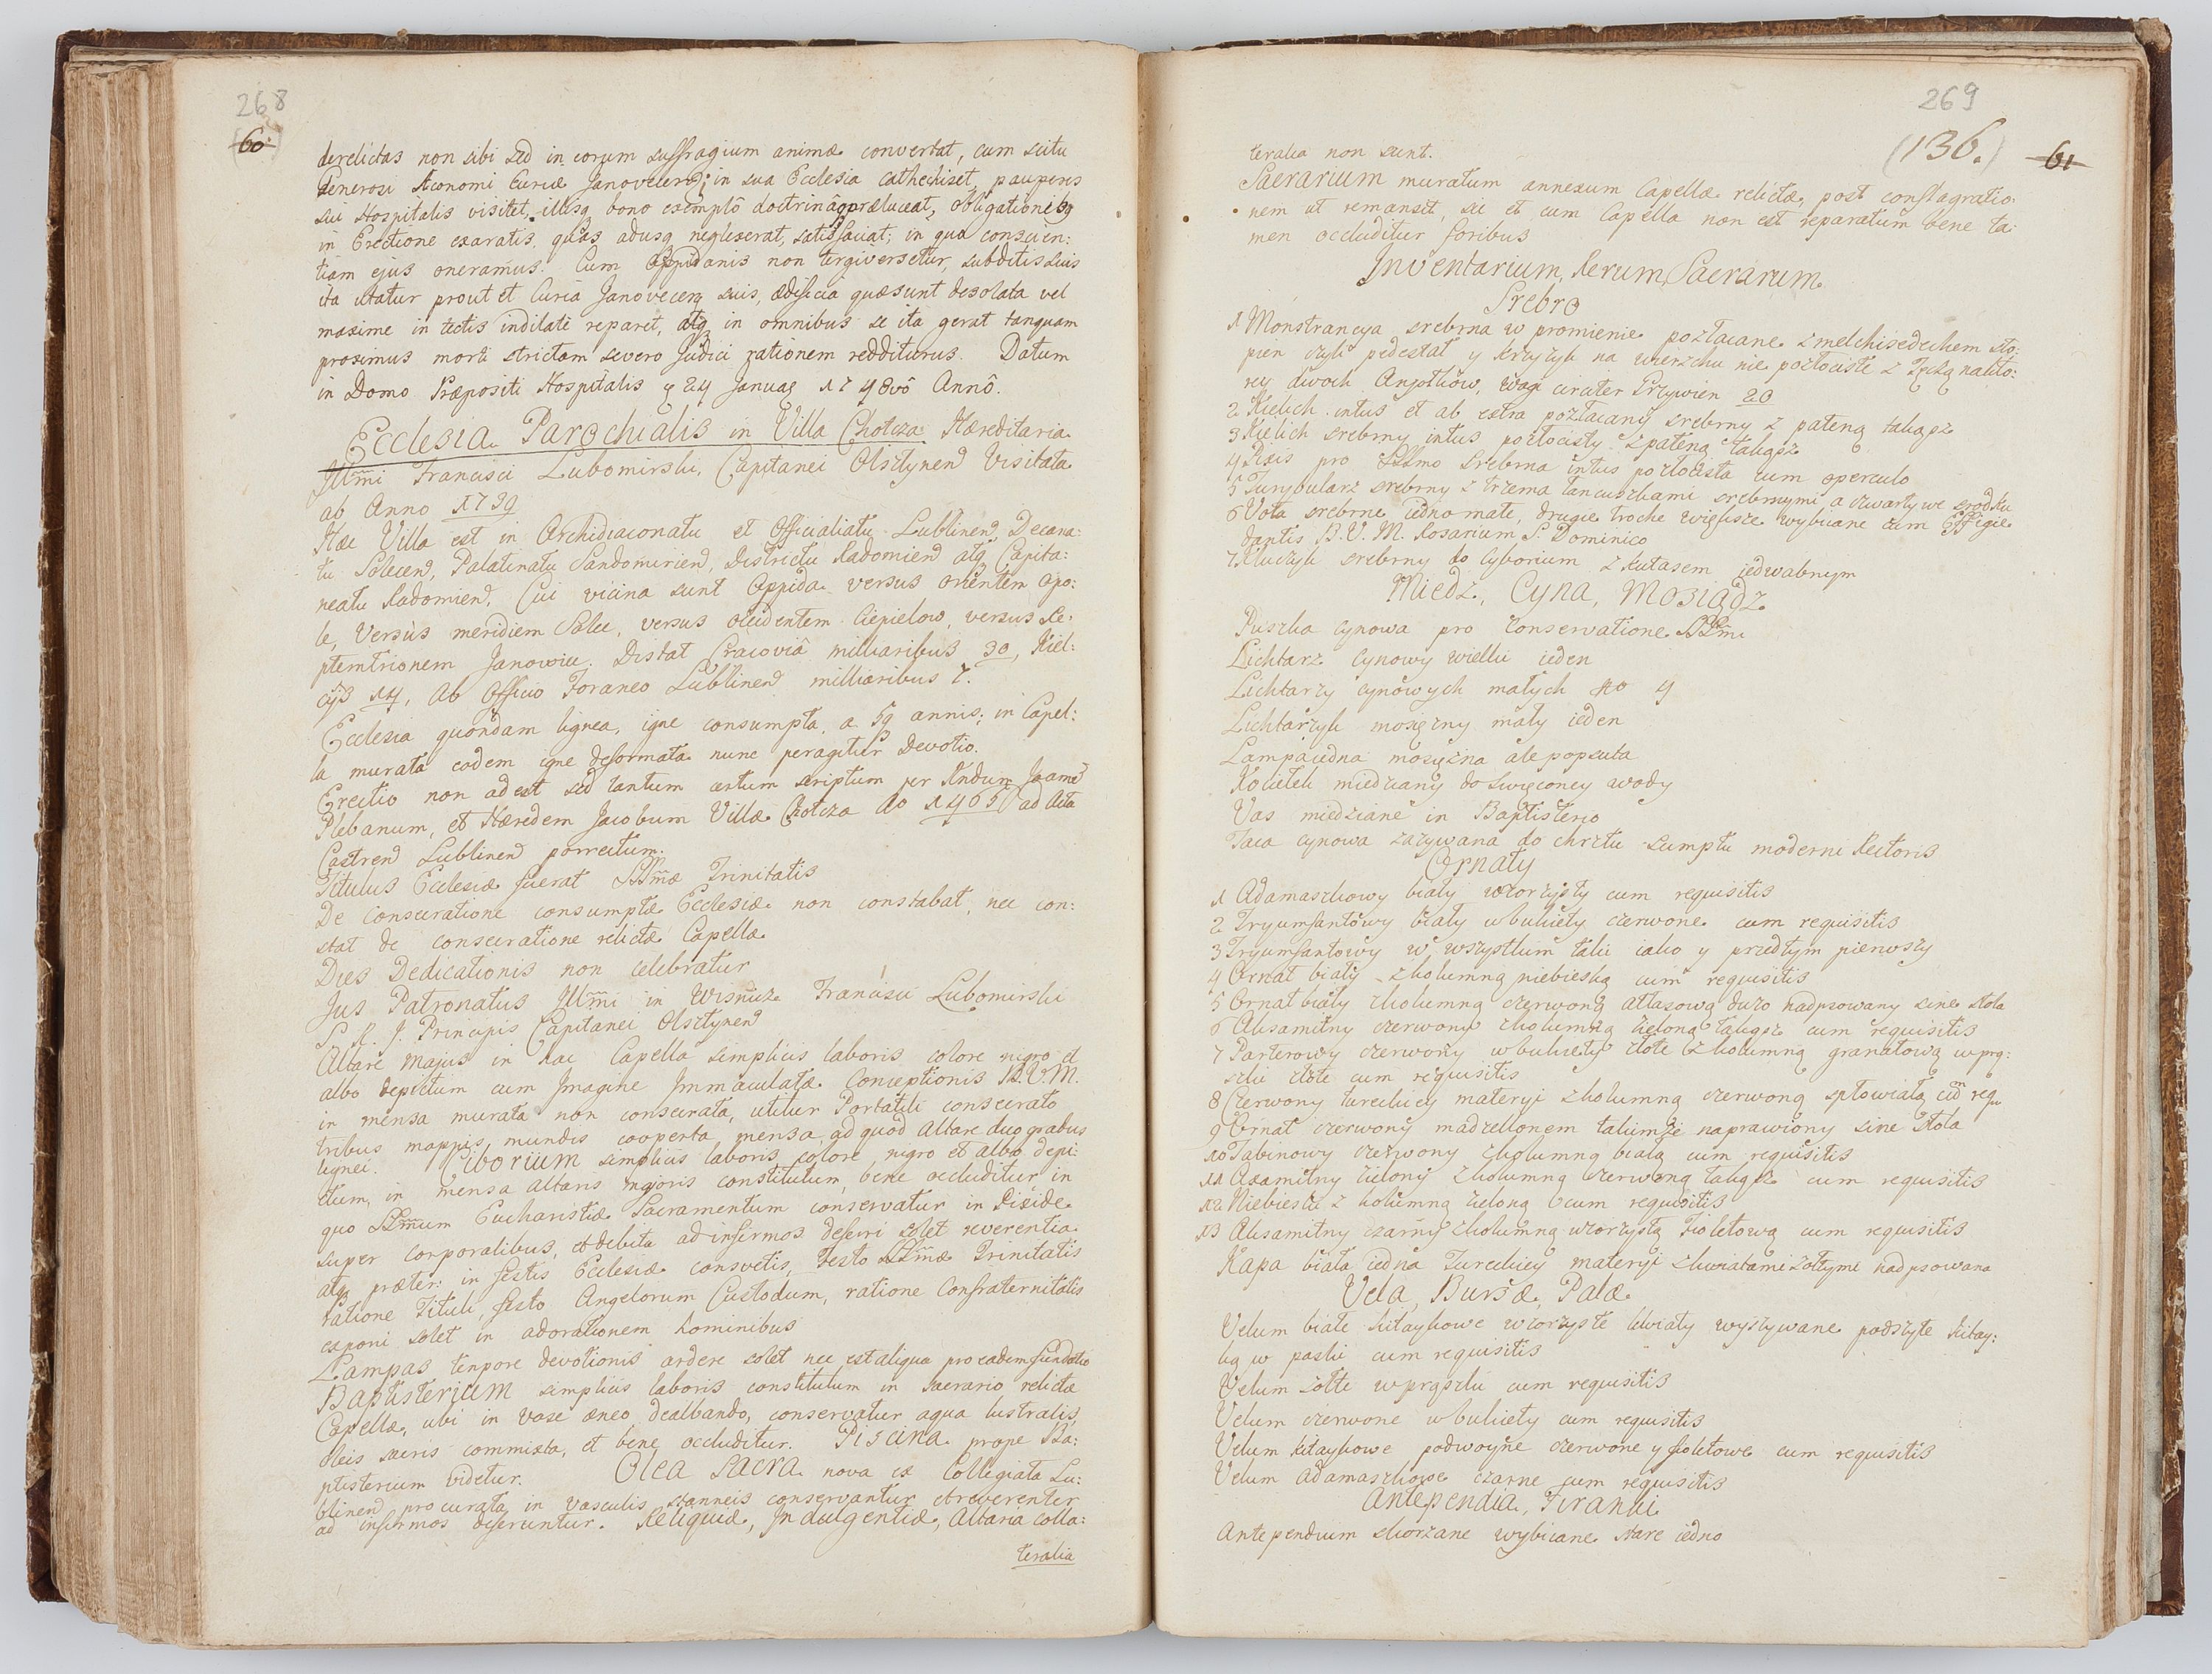 268
60
derelictas non sibi sed in eorum suffragium animæ convertat, cum scitu
Generosi Æconomi Curiæ Janovecen; in sua Ecclesia cathechiset, pauperes
sui Hospitalis visitet, illisq bono exemplô doctrinâq præluceat, obligationibq
in Erectione exaratis, quas adusq neglexerat, satisfaciat; in quo conscien:
tiam ejus oneramus. Cum Oppidanis non tergiversetur, subditis suis
ita utatur prout et Curia Janovecen suis, ædificia quæ sunt desolata vel
maxime in tectis indilatè reparet, atq in omnibus se ita gerat tanquam
proximus morti strictam severo Judici rationem redditurus. Datum
in Domo Præpositi Hospitalis 24 Januar 1748vô Annô.
Ecclesia Parochialis in Villa Chotcza Hæreditaria
Illmi Francisci Lubomirski, Capitanei Olsztynen Visitata
ab Anno 1739
Hæc Villa est in Archidiaconatu et Officialiatu Lublinen, Decana:
tu Solecen, Palatinatu Sandomirien, Districtu Radomien atq Capita:
neatu Radomien, Cui vicina sunt Oppida versus orientem Opo:
le, Versus meridiem Solec, versus occidentem Ciepielow, versus Se:
ptemtrionem Janowiec. Distat Cracoviâ milliaribus 30, Kiel:
cijs 14, ab Officio Foraneo Lublinen milliaribus 7.
Ecclesia quondam lignea, igne consumpta, a 59 annis; in Capel:
la murata eodem igne deformata nunc peragitur Devotio.
Erectio non adest sed tantum certum scriptum per Rndum Joannē
Plebanum, et Hæredem Jacobum Villæ Chotcza Ao 1465 ad Acta
Castren Lublinen porrectum.
Titulus Ecclesiæ fuerat SSmæ Trinitatis
De Consecratione consumptæ Ecclesiæ non constabat, nec con:
stat de consecratione relictæ Capellæ
Dies Dedicationis non celebratur
Jus Patronatus Illmi in Wisnicz Francisci Lubomirski
S. R. J. Principis Capitanei Olsztynen
Altare Majus in hac Capella simplicis laboris colore nigro et
albo depictum cum Jmagine Jmmaculatæ Conceptionis B.V.M.
in mensa murata non consecrata, utitur Portatili consecrato
tribus mappis mundis cooperta mensa, ad quod Altare duo gradus
lignei. Ciborium simplicis laboris colore nigro et albo depi:
ctum, in mensa Altaris majoris constitutum, bene occluditur, in
quo SSmum Eucharistiæ Sacramentum conservatur in Pixide
super Corporalibus, et debita ad infirmos deferri solet reverentia
atq præter: in festis Ecclesiæ consvetis, Festo SSmæ Trinitatis
ratione Tituli, festo Angelorum Custodum, ratione Confraternitatis
exponi solet in adorationem hominibus
Lampas tempore devotionis ardere solet nec est aliqua pro eadem fundatio
Baptisterium simplicis laboris constitutum in sacrario relictæ
Capellæ, ubi in vase æneo dealbando, conservatur aqua lustralis,
oleis sacris commixta, et bene occluditur. Piscina prope Ba:
ptisterium videtur. Olea Sacra nova ex Collegiata Lu:
blinen procurata in vasculis stanneis conservantur et reverenter
ad infirmos deferuntur. Reliquiæ, Jndulgentiæ, Altaria Colla:
teralia
269
(136.) 61
teralia non sunt.
Sacrarium muratum annexum Capellæ relictæ, post conflagratio:
nem ut remansit, sic et cum Capella non est reparatum bene ta:
men occluditur foribus
Jnventarium, Rerum Sacrarum
Srebro
1 Monstrancya srebrna w promienie pozłacane z melchisedechem sto:
pien czyli pedestał y krzyżyk na wierzchu nie pozłociste z Tęczą na kto:
rey dwoch Anjołkow, wagi circiter Grzywien 20
2 Kielich intus et ab extra pozłacany srebrny z pateną takąsz
3 Kielich srebrny intus pozłocisty z pateną takąsz
4 Pixis pro SSmo Srebrna intus pozłocista cum operculo
5 Turybularz srebrny z trzema łancuszkami srebrnymi a czwarty we srodku
6 Vota srebrne iedno małe, drugie troche większe wybiiane cum Effigie
dantis B.V.M. Rosarium S. Dominico
7 Kluczyk srebrny do Cyborium z kutasem iedwabnym
Miedz, Cyna, Mosiądz
Puszka cynowa pro Conservatione SSmi
Lichtarz Cynowy wielki ieden
Lichtarzy cynowych małych No 4
Lichtarzyk mosiężny mały ieden
Lampa iedna mosiężna ale popsuta
Kociełek miedziany do swięconey wody
Vas miedziane in Baptisterio
Taca cynowa zazywana do chrztu sumptu moderni Rectoris
Ornaty
1 Adamaszkowy biały wzorzysty cum requisitis
2 Tryumfantowy biały w bukiety czerwone cum requisitis
3 Tryumfantowy w wszystkim taki iako y przedtym pierwszy
4 Ornat biały z kolumną niebieską cum requisitis
5 Ornat biały z kolumną czerwoną attłasową duzo nadpsowany sine stola
6 Aksamitny czerwony z kolumną zieloną takąsz cum requisitis
7 Parterowy czerwony w bukiety złote z kolumną granatową w prą:
szki złote cum requisitis
8 Czerwony tureckiey materyi z kolumną czerwoną spłowiałą cū requ
9 Ornat czerwony madzellonem takimże naprawiony sine stola
10 Tabinowy czerwony z kolumną białą cum requisitis
11 Axamitny zielony z kolumną czerwoną takąsz cum requisitis
12 Niebieski z kolumną zieloną cum requisitis
13 Aksamitny czarny z kolumną wzorzystą Fioletową cum requisitis
Kapa biała iedna Tureckiey materyi z kwiatami żółtymi nadpsowana
Vela, Bursæ, Palæ
Velum białe kitaykowe wzorzyste kwiaty wyszywane podszyte kitay:
ką w paski cum requisitis
Velum żółte w prąszki cum requisitis
Velum czerwone w bukiety cum requisitis
Velum kitaykowe podwoyne czerwone y fioletowe cum requisitis
Velum adamaszkowe czarne cum requisitis
Antependia, Firanki
Antependium skorzane wybiiane stare iedno